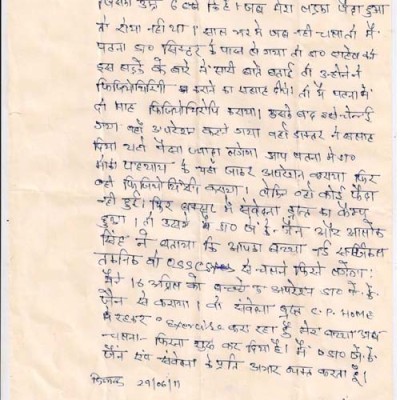 जिसका उम्र 6 वर्ष कि है। जब मेरा लड़का पैदा हुआ
तो रोया नहीं था। साल भर में जब नहीं चला तो मैं
पटना डा० सिस्टर के पास ले गया तो डा० साहब को
इस लड़के के बारे में सारी बातें बताई तो उन्होंने
फिजियोथिरेपी कराने का सलाह दिये। तो मैं पटना में
दो माह फिजियोथिरेपि कराया। उसके बाद
गया वहाँ अपरेशन कराने गया वहाँ डाक्टर ने सलाह
दिया यहाँ पैसा ज्यादा लगेगा आप पटना में डा०
के यहाँ जाकर अपरेशन कराया फिर
वही फिजियोथिरेपी कराया। लेकिन वहाँ कोई फैदा
नहीं हुई। फिर बक्सर में संवेदना ट्रस्ट का कैम्प
हुआ। तो उसमें में डा० जे. के. जैन और आलोक
सिंह ने बताया कि आपका बच्चा नई
तकनिक का OSSCS से चलने फिरने लगेगा।
मैंने 16 अप्रिल को बच्चे के अपरेशन डा० जे. के.
जैन से कराया। तो संवेदना ट्रस्ट C.P. HOME
में रहकर Exercise करा रहा हूँ मेरा बच्चा अब
चलना-फिरना शुरू कर दिया है। मैं डा० जे. के.
जैन एवं संवेदना के प्रति आभार व्यक्त करता हूँ।
दिनांक 29/06/11